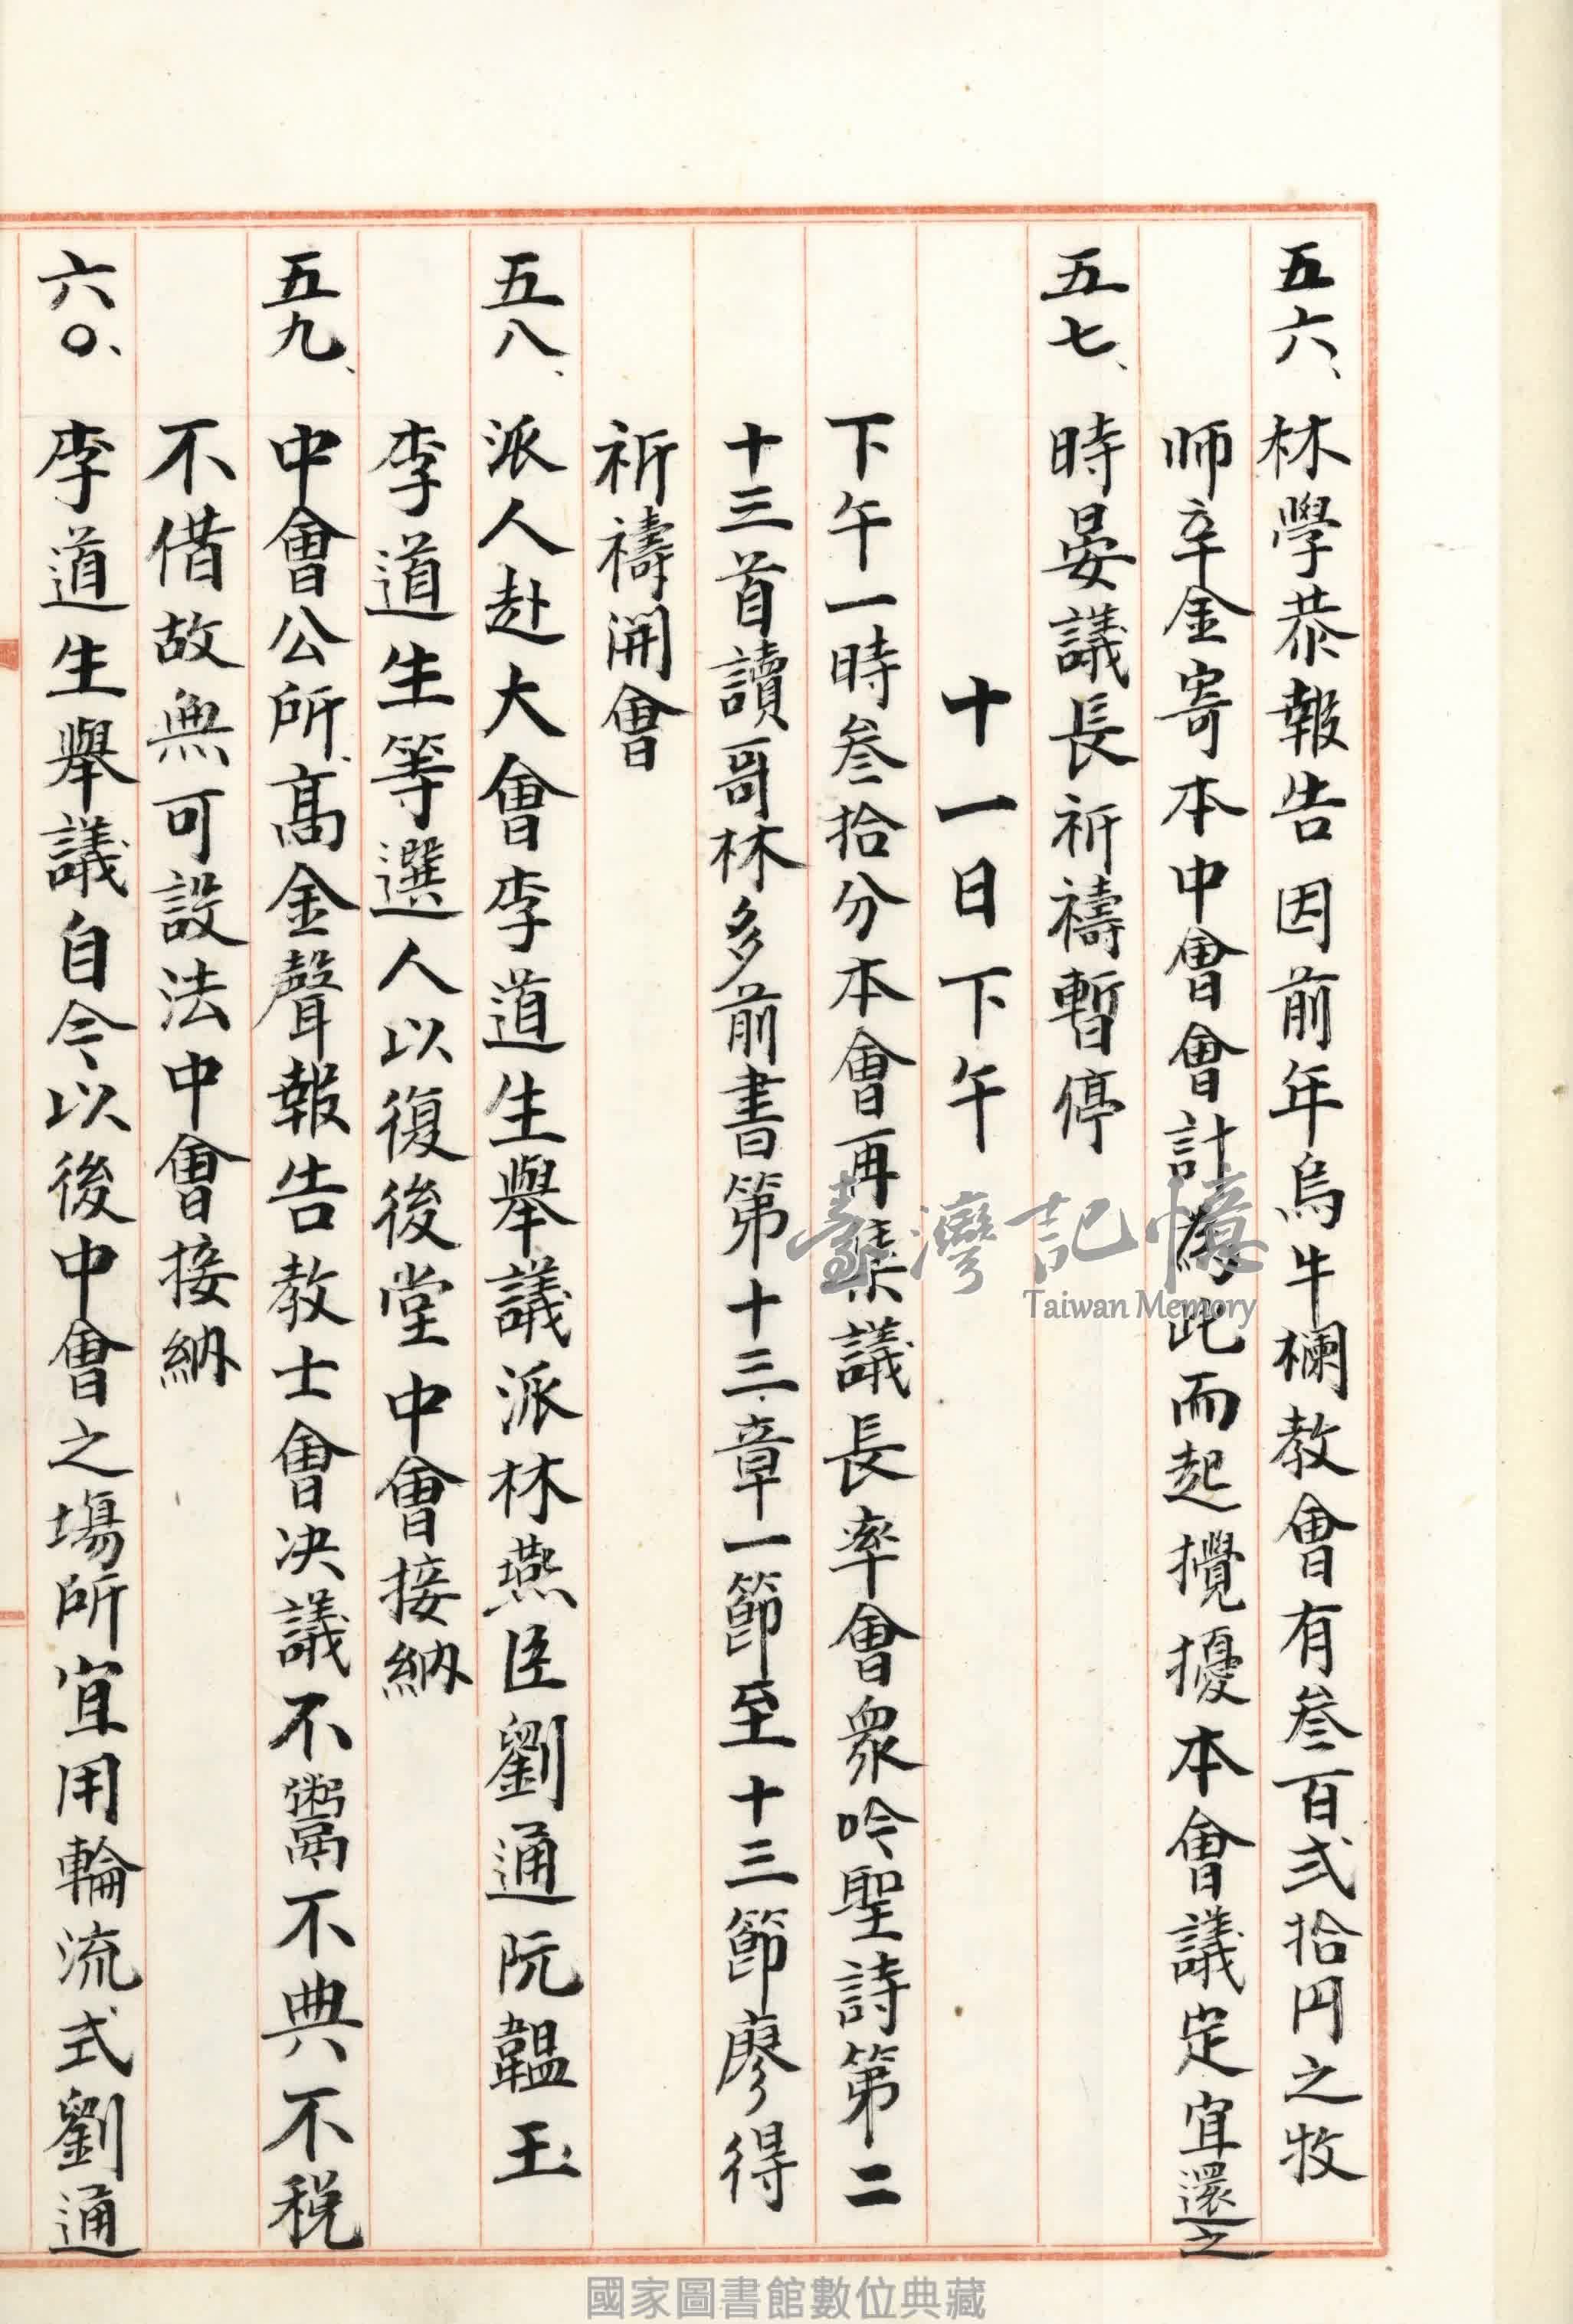 五六、林學恭報告因前年烏牛欄教會有叁百弍拾円之牧
師辛金寄本中會會計為此而起攪擾本會議定宜還之
五七、時晏議長祈禱暫停
十一日下午
下午一時叁拾分本會再集議長率會眾吟聖詩第二
十三首讀哥林多前書第十三章一節至十三節廖得
祈禱開會
五八、派人赴大會李道生舉議派林燕臣劉通阮韞玉
李道生等選人以復後堂中會接納
五九、中會公所、高金聲報告教士會決議不鬻不典不稅
不借故無可設法中會接納
六〇、李道生舉議自今以後中會之塲所宜用輪流式劉通
臺灣記憶
Taiwan Memory
國家圖書館數位典藏